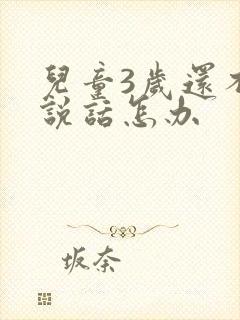 兒童3歲還不
說話怎办
坂奈